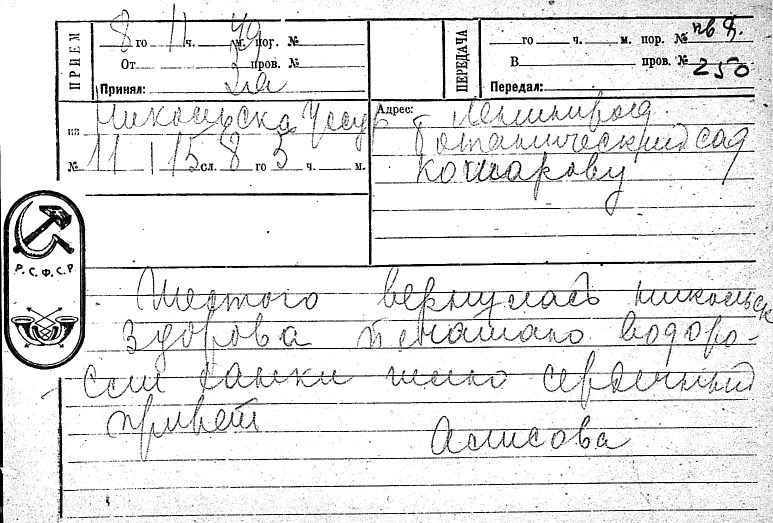 ПРИЕМ
8 го 11 ч. м. пог. №
От пров. №
Принял:
ПЕРЕДАЧА
го ч. м. пор. №
В пров. № 250
Передал:
из Никольска Уссур
№ 11 115 сл. 8 го 5 ч. м.
Адрес: Ленинград
Ботанический сад
Комарову
Р.С.Ф.С.Р.
Шестого вернулась Никольск
здорова водоро-
сли сердечный
привет
Алисова